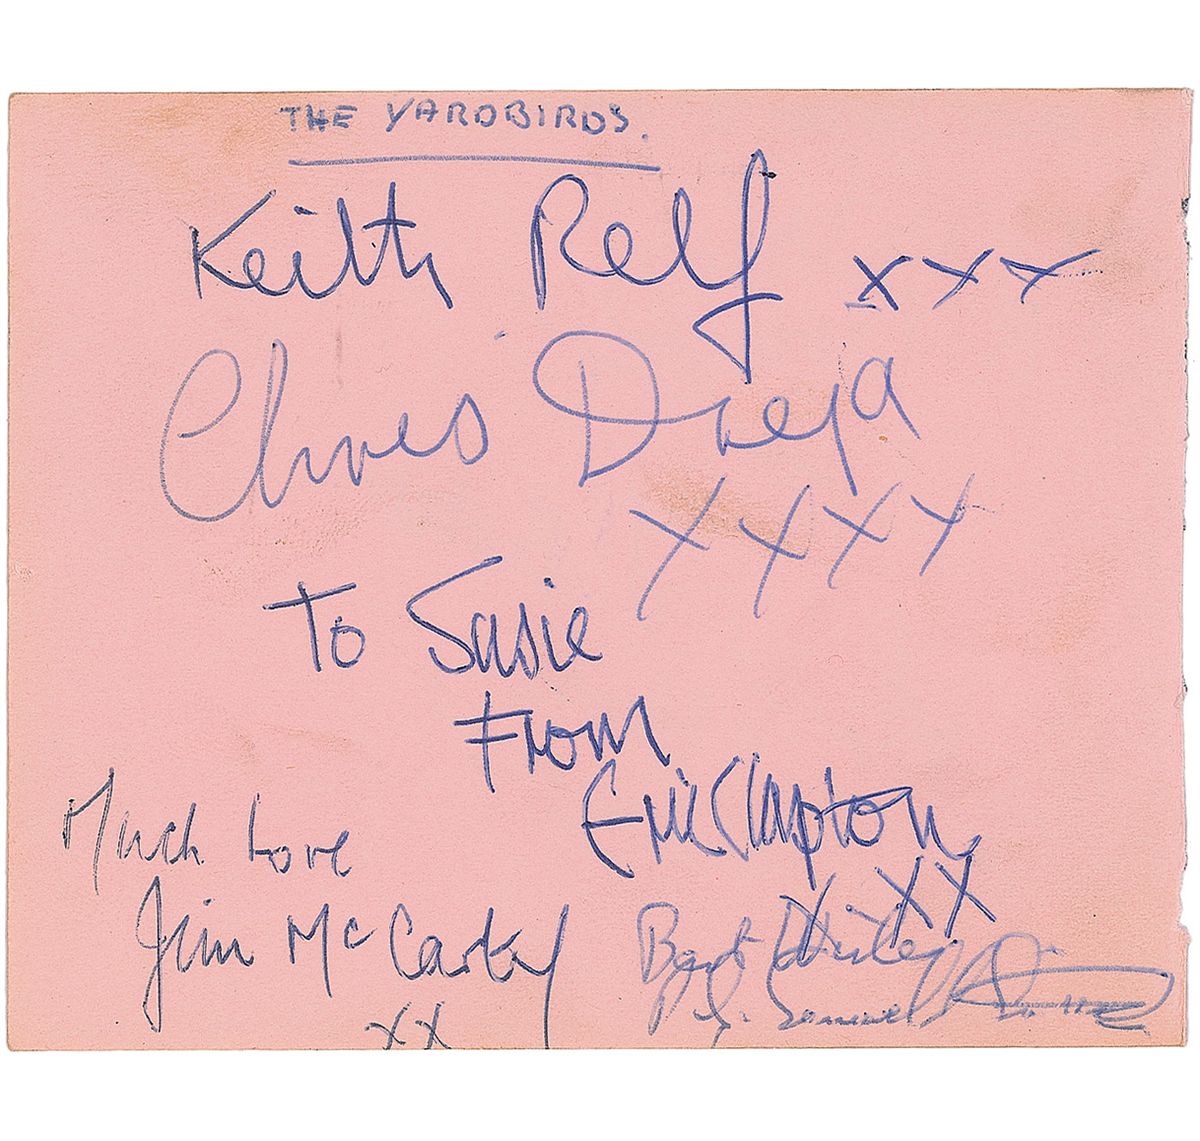 THE YARDBIRDS.
Keith Relf xxx
Chris Dreja
xxxx
To Susie
From
Eric Clapton
xxx
Much Love
Jim McCarty
xx
Best Wishes